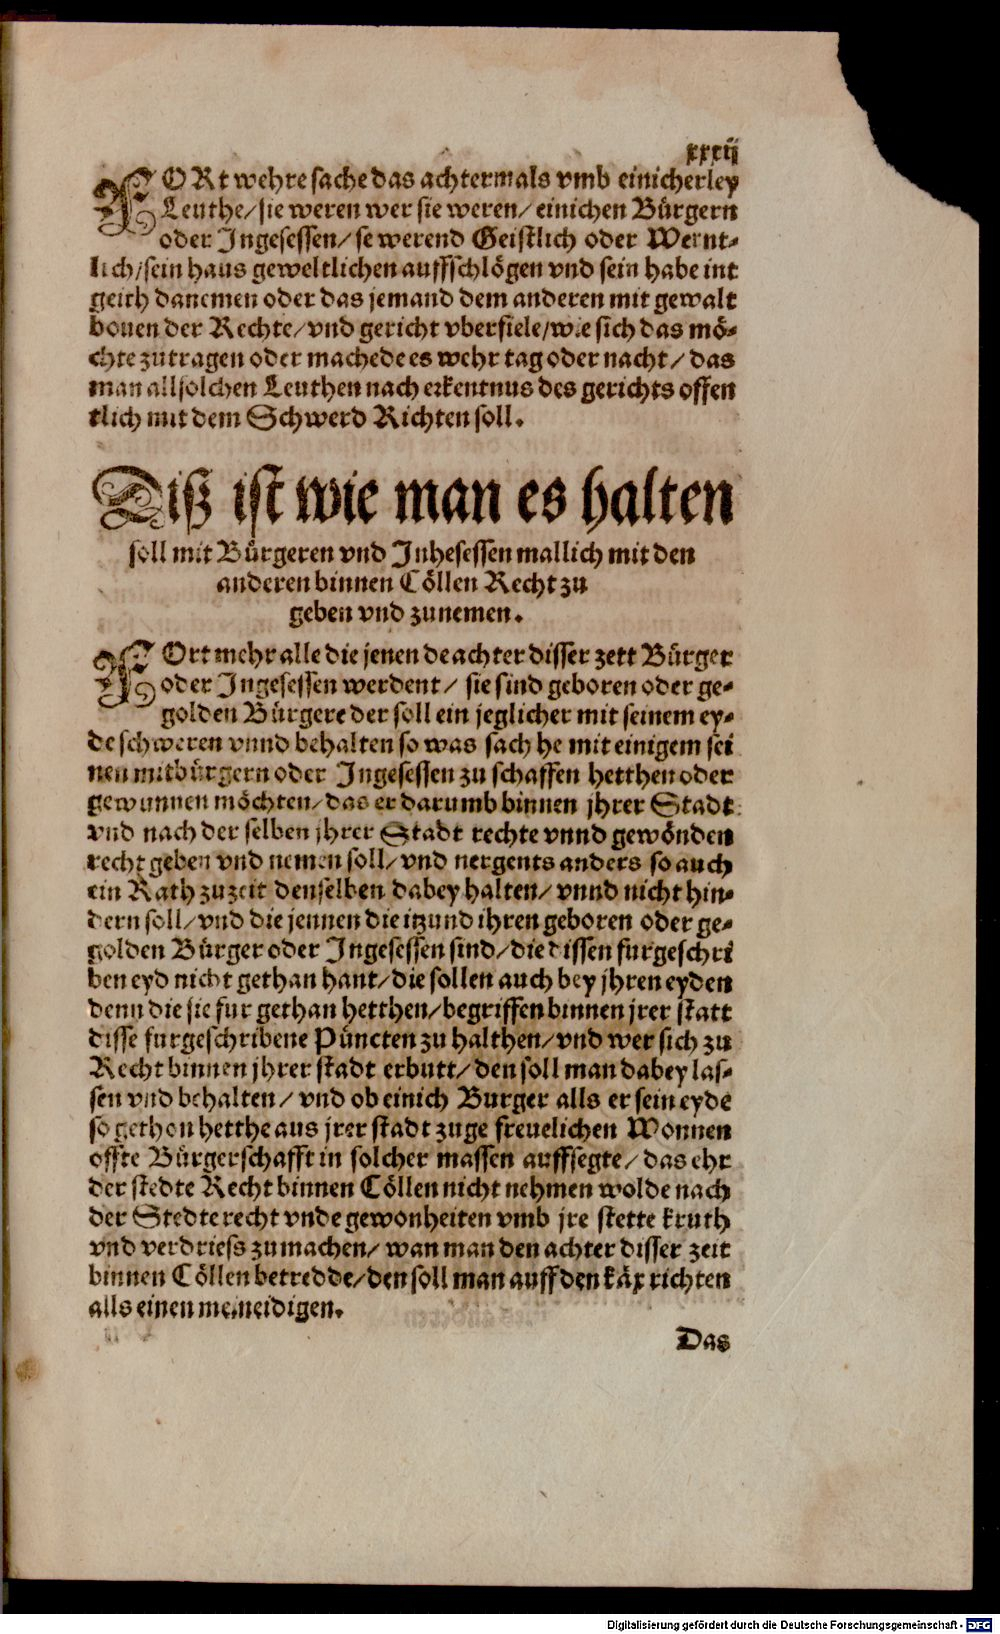 xxxij
FORt wehre sache das achtermals vmb einicherley
Leuthe/ sie weren wer sie weren/ einichen Bürgern
oder Ingesessen/ se werend Geistlich oder Wernt-
lich/ sein haus geweltlichen auffschlögen vnd sein habe int
geith danemen oder das jemand dem anderen mit gewalt
bouen der Rechte/ vnd gericht vberfiele/ wie sich das mö-
chte zutragen oder machede es wehr tag oder nacht/ das
man allsolchen Leuthen nach erkentnus des gerichts offen
tlich mit dem Schwerd Richten soll.
Diß ist wie man es halten
soll mit Bürgeren vnd Inhesessen mallich mit den
anderen binnen Cöllen Recht zu
geben vnd zunemen.
FOrt mehr alle die jenen de achter disser zett Bürger
oder Ingesessen werdent/ sie sind geboren oder ge-
golden Bürgere der soll ein jeglicher mit seinem ey-
de schweren vnnd behalten so was sach he mit einigem sei
nen mitbürgern oder Ingesessen zu schaffen hetthen oder
gewunnen möchten/ das er darumb binnen jhrer Stadt
vnd nach der selben jhrer Stadt rechte vnnd gewönden
recht geben vnd nemen soll/ vnd nergents anders so auch
ein Rath zuzeit denselben dabey halten/ vnnd nicht hin-
dern soll/ vnd die jennen die itzund ihren geboren oder ge-
golden Bürger oder Ingesessen sind/ die dissen furgeschri
ben eyd nicht gethan hant/ die sollen auch bey jhren eyden
denn die sie fur gethan hetthen/ begriffen binnen jrer statt
disse furgeschribene Püncten zu halthen/ vnd wer sich zu
Recht binnen jhrer stadt erbutt/ den soll man dabey las-
sen vnd behalten/ vnd ob einich Burger alls er sein eyde
so gethon hetthe aus jrer stadt zuge freuelichen Wonnen
offte Bürgerschafft in solcher massen auffsegte/ das ehr
der stedte Recht binnen Cöllen nicht nehmen wolde nach
der Stedte recht vnde gewonheiten vmb jre stette kruth
vnd verdriess zumachen/ wan man den achter disser zeit
binnen Cöllen betredde/ den soll man auff den käx richten
alls einen meineidigen.
Das
Digitalisierung gefördert durch die Deutsche Forschungsgemeinschaft - DFG